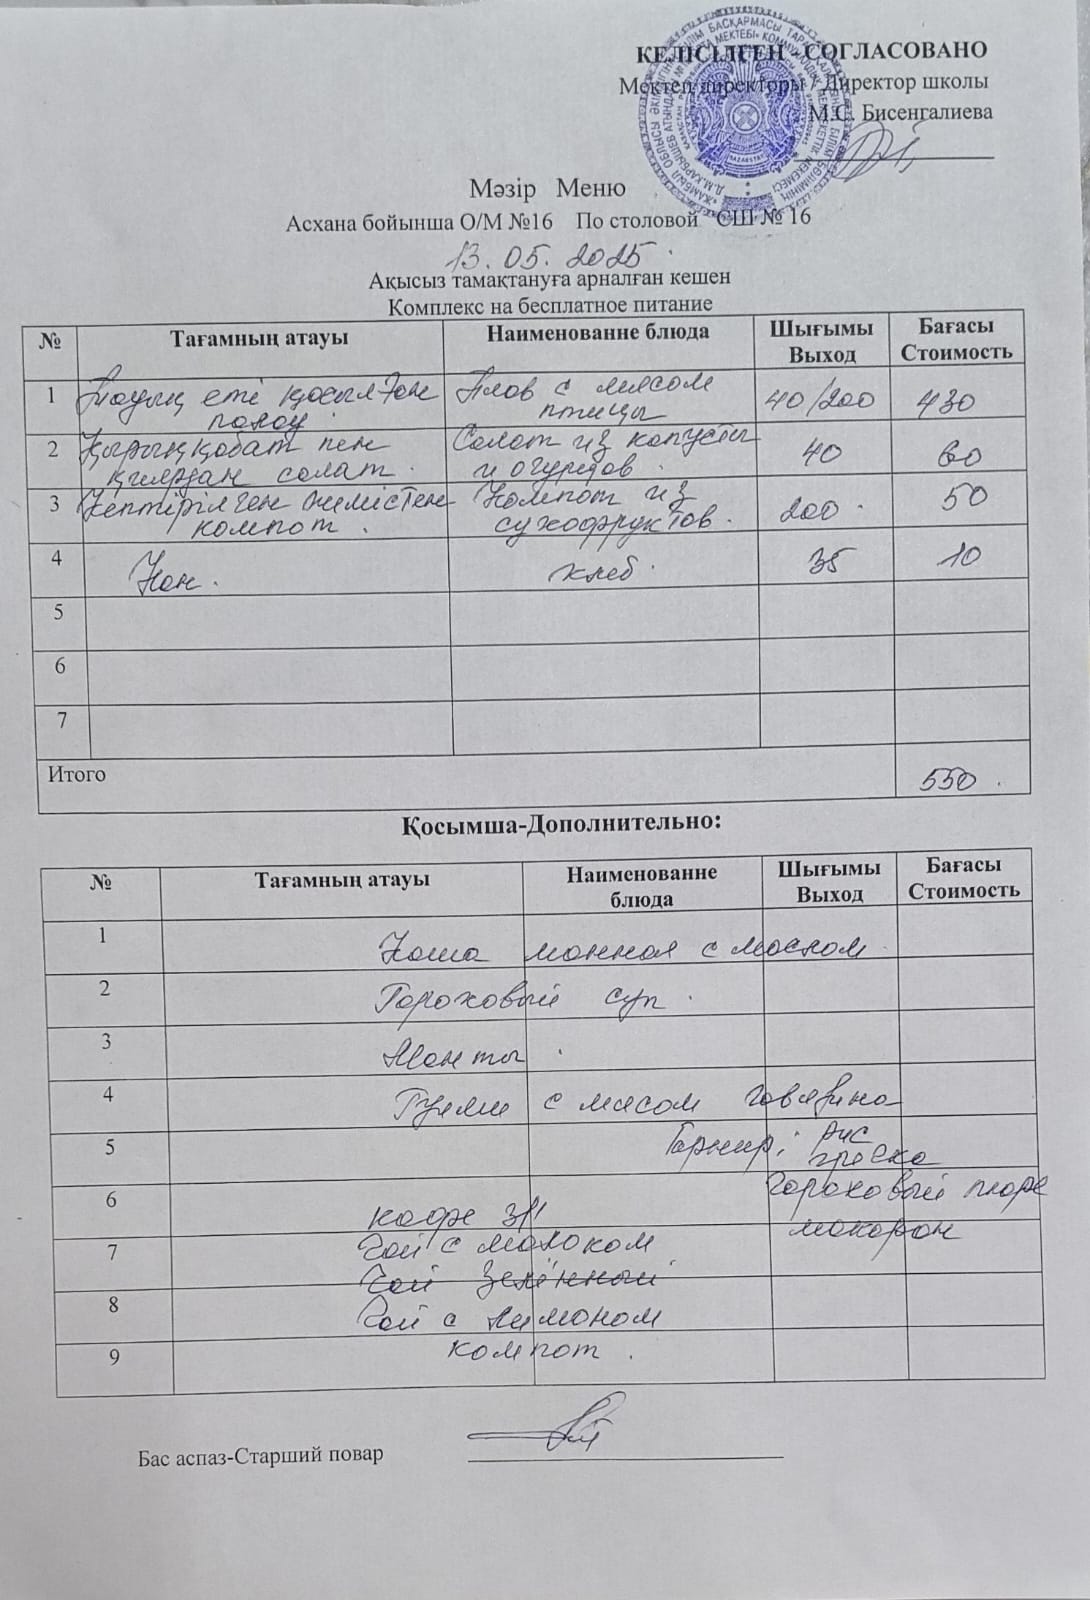 КЕЛІСІЛГЕН - СОГЛАСОВАНО
Мектеп директоры / Директор школы
М.С. Бисенгалиева
Мәзір Меню
Асхана бойынша О/М №16 По столовой СШ № 16
13.05.2025
Ақысыз тамақтануға арналған кешен
Комплекс на бесплатное питание
№ Тағамның атауы Наименованне блюда Шығымы Выход Бағасы Стоимость
1 Тауық еті қосылған палау Плов с мясом птицы 40/200 430
2 Қырыққабат пен қиярдан салат. Салат из капусты и огурцов. 40 60
3 Кептірілген жемістен компот. Компот из сухофруктов. 200. 50
4 Нан. хлеб. 35 10
5
6
7
Итого 550.
Қосымша-Дополнительно:
№ Тағамның атауы Наименованне блюда Шығымы Выход Бағасы Стоимость
1 Каша манная с маслом.
2 Гороховый суп.
3 Манты.
4 Гуляш с мясом говядина
5 Гарнир: рис
гречка
гороховый пюре
6 кофе 3в1 макарон
7 Чай с молоком
Чай зелённый
8 Чай с лимоном
9 компот.
Бас аспаз-Старший повар